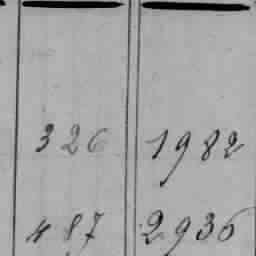 326 1982
487 2936